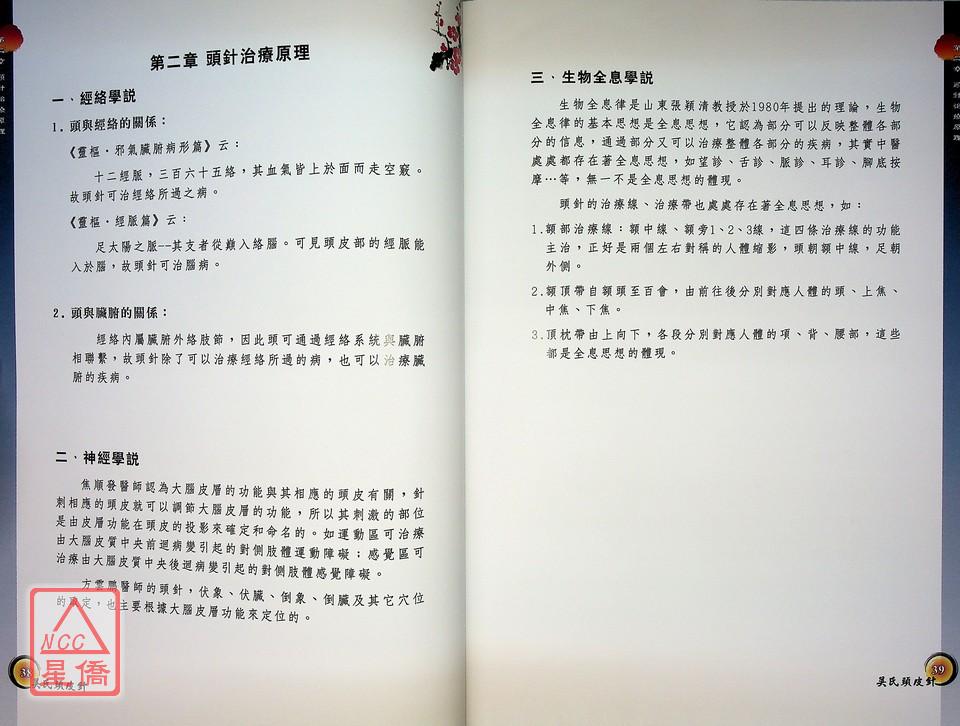 第二章 頭針治療原理
一、經絡學説
1. 頭與經絡的關係：
《靈樞·邪氣臟腑病形篇》云：
十二經脈，三百六十五絡，其血氣皆上於面而走空竅。
故頭針可治經絡所過之病。
《靈樞·經脈篇》云：
足太陽之脈--其支者從巔入絡腦。可見頭皮部的經脈能
入於腦，故頭針可治腦病。
2. 頭與臟腑的關係：
經絡內屬臟腑外絡肢節，因此頭可通過經絡系統與臟腑
相聯繫，故頭針除了可以治療經絡所過的病，也可以治療臟
腑的疾病。
二、神經學説
焦順發醫師認為大腦皮層的功能與其相應的頭皮有關，針
刺相應的頭皮就可以調節大腦皮層的功能，所以其刺激的部位
是由皮層功能在頭皮的投影來確定和命名的。如運動區可治療
由大腦皮質中央前迴病變引起的對側肢體運動障礙；感覺區可
治療由大腦皮質中央後迴病變引起的對側肢體感覺障礙。
方雲鵬醫師的頭針，伏象、伏臟、倒象、倒臟及其它穴位
的取定，也主要根據大腦皮層功能來定位的。
NCC
星僑
38
吳氏頭皮針
三、生物全息學説
生物全息律是山東張穎清教授於1980年提出的理論，生物
全息律的基本思想是全息思想，它認為部分可以反映整體各部
分的信息，通過部分又可以治療整體各部分的疾病，其實中醫
處處都存在著全息思想，如望診、舌診、脈診、耳診、腳底按
摩…等，無一不是全息思想的體現。
頭針的治療線、治療帶也處處存在著全息思想，如：
1.額部治療線：額中線、額旁1、2、3線，這四條治療線的功能
主治，正好是兩個左右對稱的人體縮影，頭朝額中線，足朝
外側。
2.額頂帶自額頭至百會，由前往後分別對應人體的頭、上焦、
中焦、下焦。
3.頂枕帶由上向下，各段分別對應人體的項、背、腰部，這些
都是全息思想的體現。
第二章 頭針治療原理
吳氏頭皮針
39